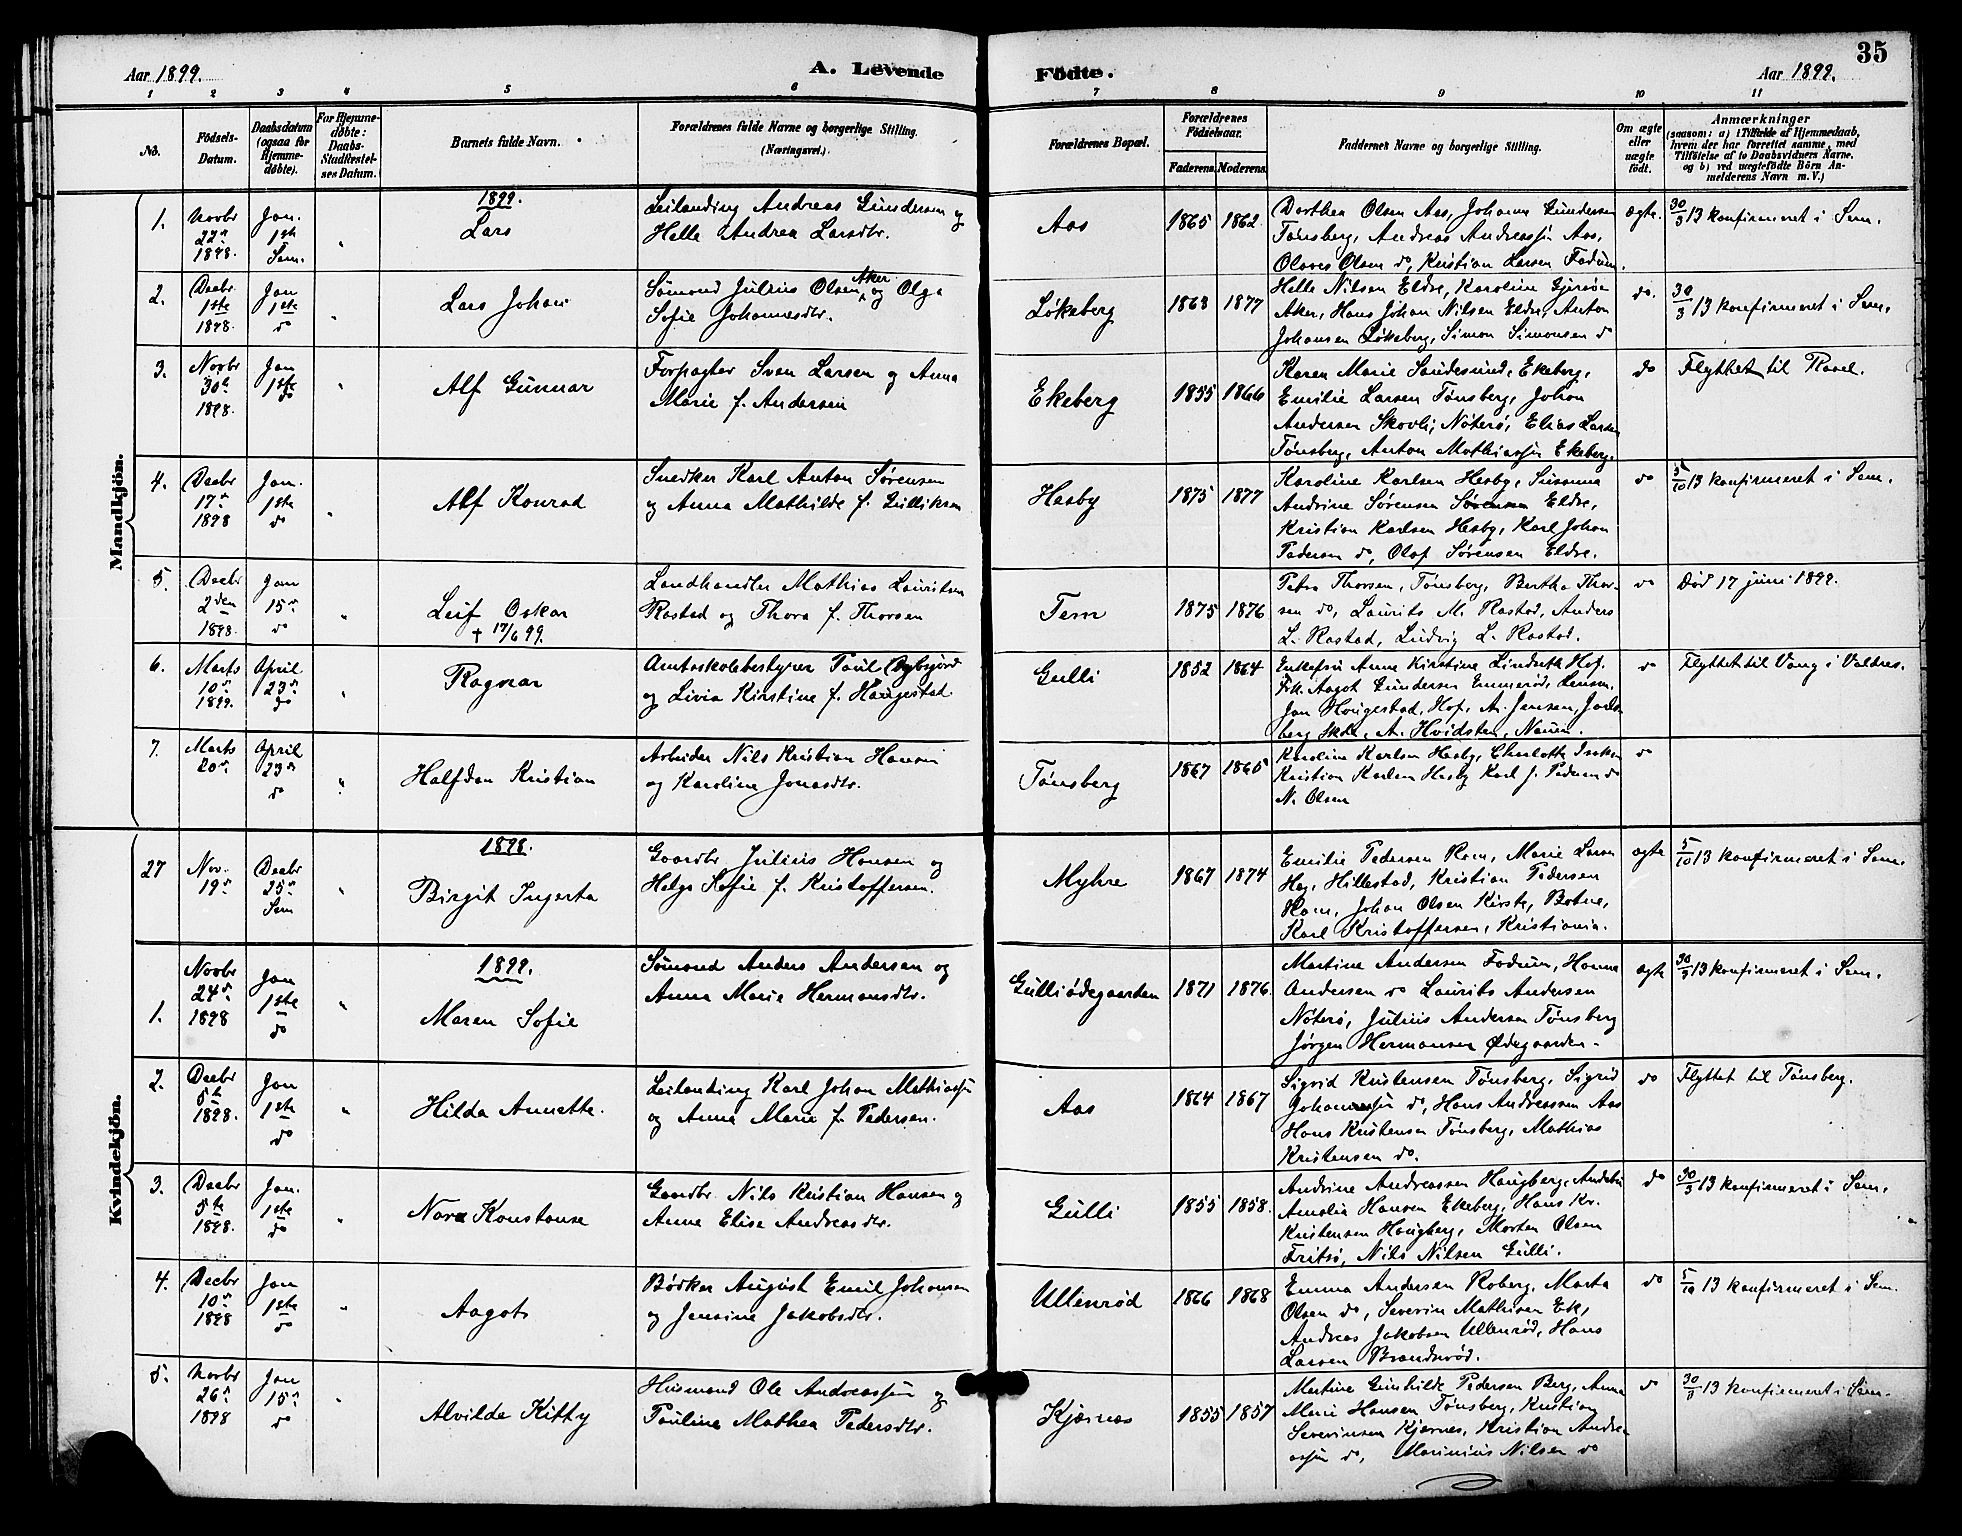 35
Aar 1899.
A. Levende
Födte.
Aar 1899.
1 2 3 4 5 6 7 8 9 10 11
No.
Födsels-
Datum.
Daabsdatum
(ogsaa for
Hjemme-
døbte).
For Hjemme-
døbte:
Daabs-
Stadfæstel-
ses Datum.
Barnets fulde Navn.
Forældrenes fulde Navne og borgerlige Stilling.
(Næringsvei.)
Forældrenes Bopæl.
Forældrenes
Födselsaar.
Faderens. Moderens.
Faddernes Navne og borgerlige Stilling.
Om ægte
eller
uægte
født.
Anmærkninger
(saasom: a) i Tilfælde af Hjemmedaab,
hvem der har forrettet samme, med
Tilföielse af to Daabsvidners Navne,
og b) ved uægtefödte Börn An-
melderens Navn m. V.)
Mandkjön.
1899.
1.
Novbr
22de
1898.
Jan.
1ste
Sem.
"
Lars
Leilænding Andreas Gundersen og
Helle Andrea Larsdtr.
Aas
1865 1862
Dorthea Olsen Aas, Johanne Gundersen
Tønsberg, Andreas Andreassen Aas,
Olaves Olsen do, Kristian Larsen Fadum.
ægte.
30/3 13 konfirmeret i Sem.
2.
Decbr
1ste
1898.
Jan
1ste
do
"
Lars Johan
Sømand Julius Olsen Aker og Olga
Sofie Johannesdtr.
Løkeberg
1863 1877
Helle Nilsen Eldre, Karoline Gjersøe
Aker, Hans Johan Nilsen Eldre, Anton
Johansen Løkeberg, Simon Simonsen do
do.
30/3 13 konfirmeret i Sem.
3.
Novbr
30te
1898.
Jan
1ste
do
"
Alf Gunnar
Forpagter Sven Larsen og Anna
Marie f. Andersen
Ekeberg
1855 1866
Karen Marie Sandesund, Ekeberg,
Emilie Larsen Tønsberg, Johan
Andersen Skovli, Nøterø, Elias Larsen
Tønsberg, Anton Mathiassen Ekeberg.
do
Flyttet til Ravel.
4.
Decbr
17de
1898
Jan.
1ste
do
"
Alf Konrad
Snedker Karl Anton Sørensen
og Anna Mathilde f. Gulliksen
Hesby
1875 1877
Karoline Karlsen Hesby, Susanna
Andrine Sørensen Sørensen Eldre,
Kristian Karlsen Hesby, Karl Johan
Pedersen do, Olaf Sørensen Eldre.
do
5/10 13 konfirmeret i Sem.
5.
Decbr
2den
1898.
Jan
15de
do
"
Leif Oskar
+ 17/6 99.
Landhandler Mathias Lauritsen
Rastad og Thora f. Thorsen
Tem
1875 1876
Petra Thorsen, Tønsberg, Bertha Thor-
sen do, Laurits M. Rastad, Anders
L. Rastad, Ludvig L. Rastad.
do
Død 17 juni 1899.
6.
Marts
10de
1899.
April
23de
do
"
Ragnar
Amtsskolebestyrer Paul
og Livia Kirstine f. Haugestad
Gulli
1852 1864
Enkefru Anne Kirstine Lindseth Hof.
Frk. Aagot Gundersen Emmerød, Lensm.
Jan Haugestad, Hof, A. Jensen, Jarls-
berg Skole, A. Hvidsten, Nauen.
do
Flyttet til Vang i Valdres.
7.
Marts
20de
April
23de
do
"
Halfdan Kristian
Arbeider Nils Kristian Hansen
og Karoline Jonasdtr.
Tønsberg
1867 1865
Karoline Karlsen Hesby, Charlotte Isaksen
Kristian Karlsen Hesby Karl J. Pedersen do
N. Olsen
do
Kvindekjön.
1898.
27
Nov.
19de
Decbr
25de
Sem
"
Birgit Ingerta
Gaardbr. Julius Hansen og
Helga Sofie f. Kristoffersen.
Myhre
1867 1874
Emilie Pedersen Ram, Marie Larsen
Hag, Hillestad, Kristian Pedersen
Ram, Johan Olsen Kirste, Botne,
Karl Kristoffersen, Kristiania.
ægte
5/10 13 konfirmeret i Sem.
1899.
1.
Novbr
24de
1898
Jan
1ste
do
"
Maren Sofie
Sømand Anders Andersen og
Anna Marie Hermansdtr.
Gulliødegaarden
1871 1876.
Martine Andersen Fadum, Hanna
Andersen do Laurits Andersen
Nøterø, Julius Andersen Tønsberg
Jørgen Hermansen Ødegaarden.
ægte
30/3 13 konfirmeret i Sem.
2.
Decbr
5te
1898.
Jan
1ste
do
"
Hilda Annette.
Leilænding Karl Johan Mathiassen
og Anna Marie f. Pedersen.
Aas
1864 1867
Sigrid Kristensen Tønsberg, Sigrid
Johannessen do, Hans Andreassen Aas
Hans Kristensen Tønsberg, Mathias
Kristensen do.
do
Flyttet til Tønsberg.
3.
Decbr
5te
1898.
Jan.
1ste
do
"
Nora Konstanse
Gaardbr. Nils Kristian Hansen og
Anne Elise Andreasdtr.
Gulli
1855 1858.
Andrine Andreassen Haugberg, Andebu
Amalie Hansen Ekeberg, Hans Kr.
Kristensen Haugberg, Morten Olsen
Fritsø, Nils Nilsen Gulli.
do
30/3 13 konfirmeret i Sem.
4.
Decbr
10de
1898
Jan
1ste
do
"
Aagot
Bødker August Emil Johansen
og Jensine Jakobsdtr.
Ullenrød
1866 1868
Emma Andersen Roberg, Marta
Olsen do, Severin Mathisen Ek,
Andreas Jakobsen Ullenrød, Hans
Larsen Brandsrød.
do
5/10 13 konfirmeret i Sem.
5.
Novbr
26de
1898
Jan
15de
do
"
Alvilde Kitty
Husmand Ole Andreassen og
Pauline Mathea Pedersdtr.
Kjærnes
1855 1857
Martine Gunhilde Pedersen Berg, Anna
Marie Hansen Tønsberg, Kristian
Severinsen Kjernes, Kristian Andre-
assen do, Marinius Nilsen do
do
13 konfirmeret i Sem.